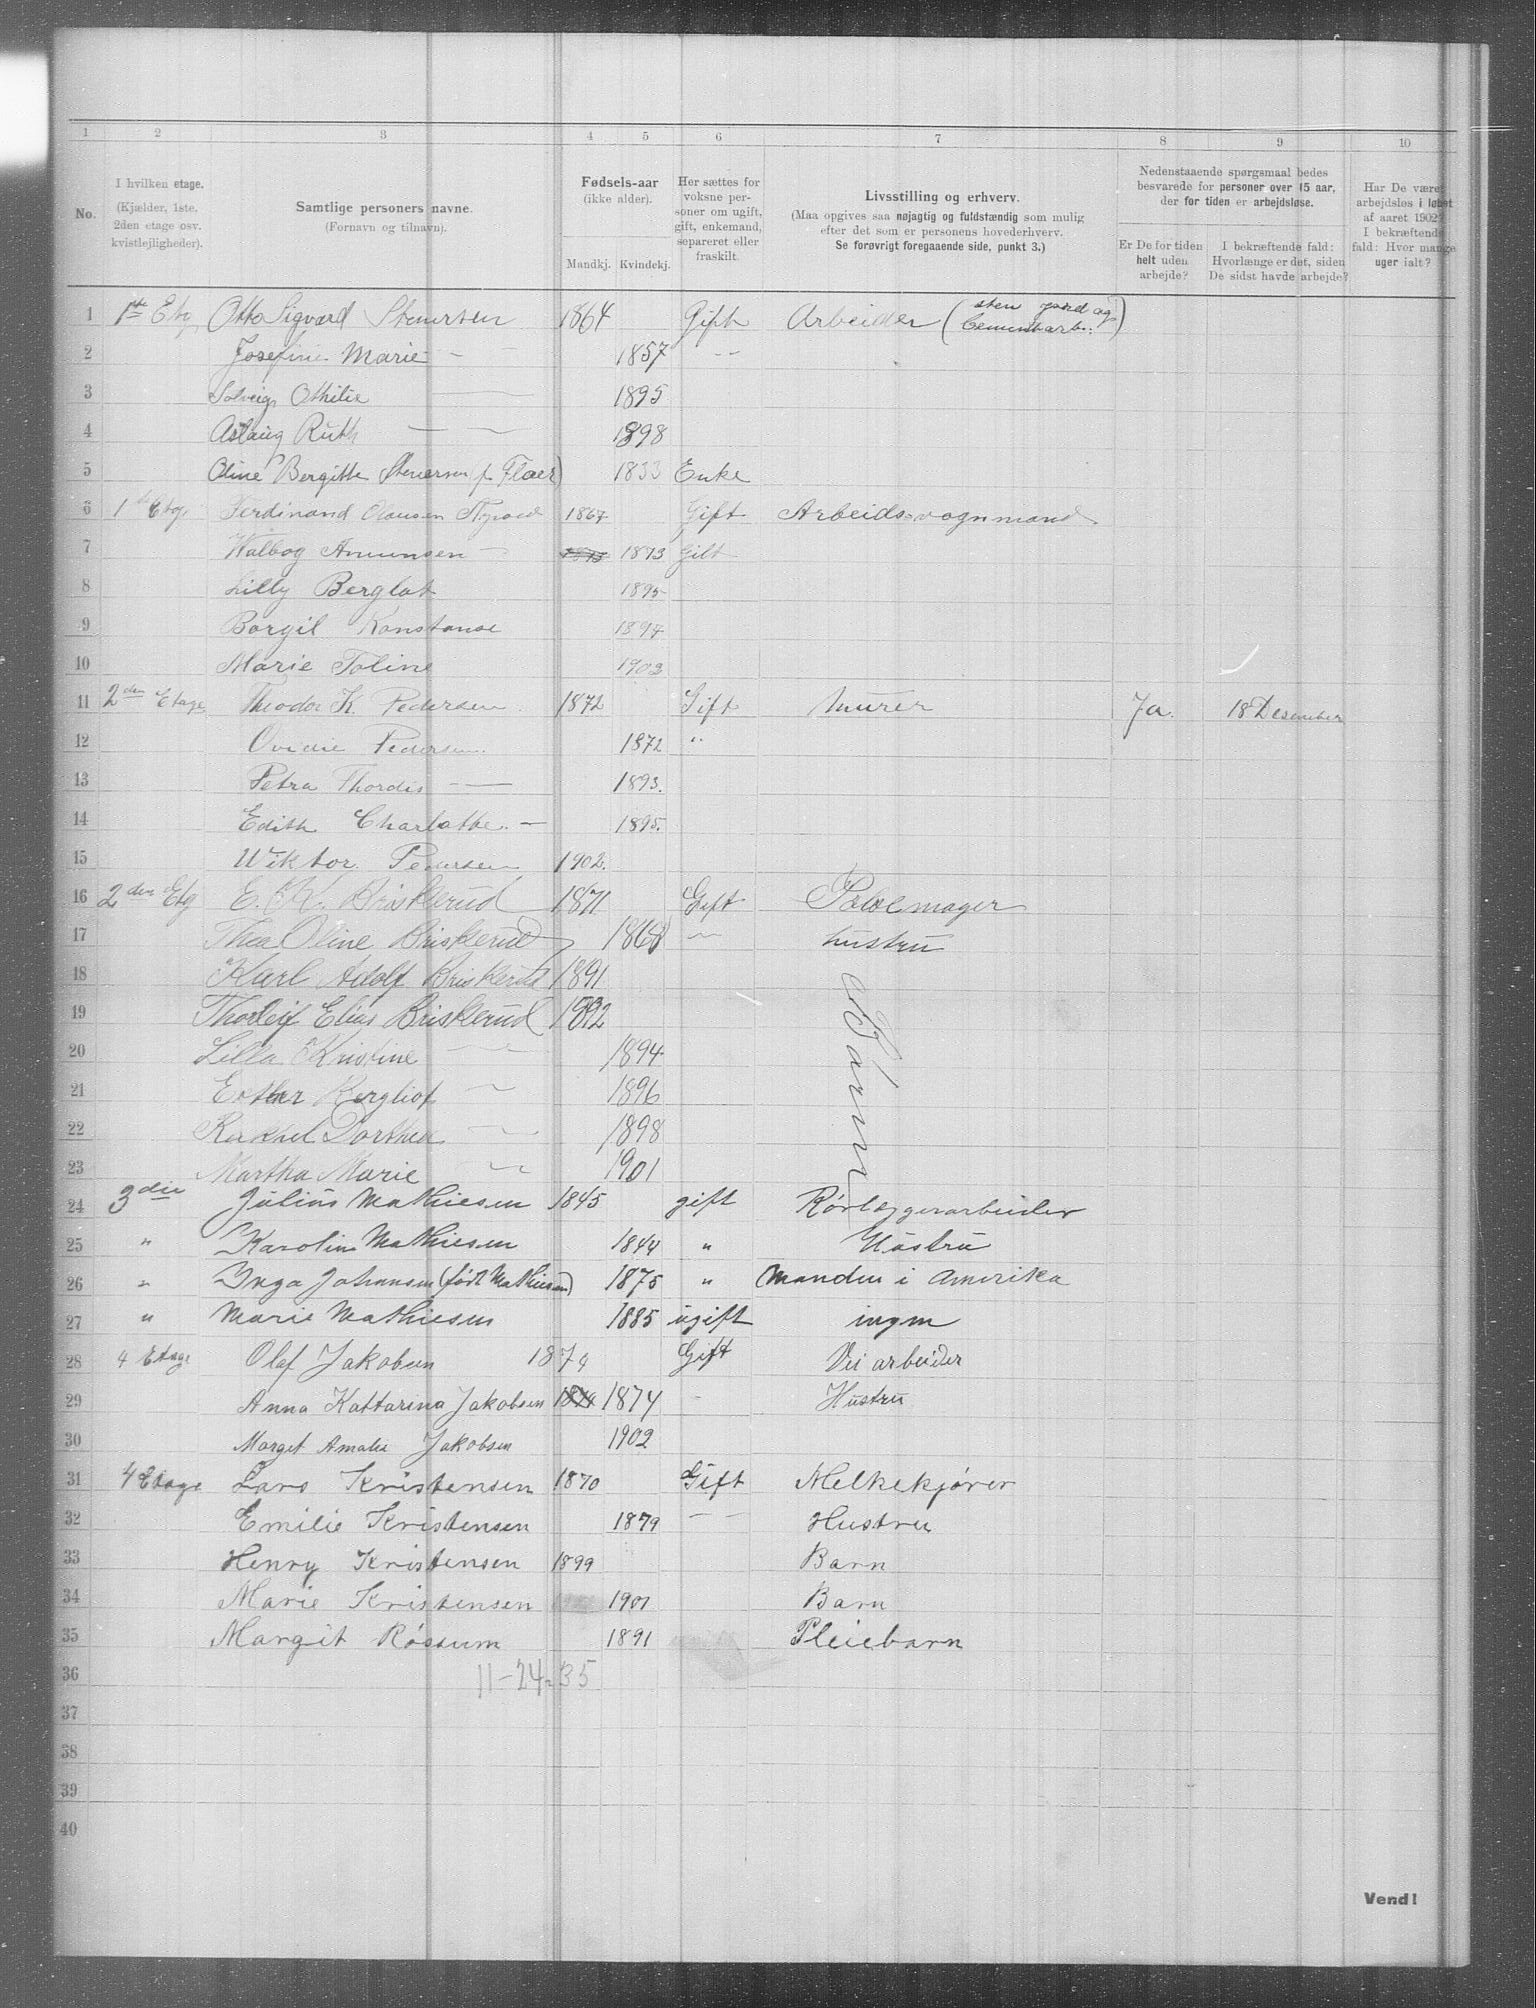 1 2 3 4 5 6 7 8 9 10
No.
I hvilken etage.
(Kjælder, 1ste,
2den etage osv.
kvistlejligheder).
Samtlige personers navne.
(Fornavn og tilnavn).
Fødsels-aar
(ikke alder).
Mandkj. Kvindekj.
Her sættes for
voksne per-
soner om ugift,
gift, enkemand,
separeret eller
fraskilt.
Livsstilling og erhverv.
(Maa opgives saa nøjagtig og fuldstændig som mulig
efter det som er personens hovederhverv.
Se forøvrigt foregaaende side, punkt 3.)
Nedenstaaende spørgsmaal bedes
besvarede for personer over 15 aar,
der for tiden er arbejdsløse.
Er De for tiden
helt uden
arbejde?
I bekræftende fald:
Hvorlænge er det, siden
De sidst havde arbejde?
Har De være
arbejdsløs i løbet
af aaret 1902?
I bekræftende
fald: Hvor mange
uger ialt?
1 1st Etg Otto Sigvard Stenersen 1864 Gift Arbeider (sten jord og Cementarb.)
2 Josefine Marie — — 1857 — —
3 Solveig Othilie — 1895
4 Aslaug Ruth — — 1898
5 Oline Bergitte Stenersen f. Floer) 1833 Enke
6 1 Etg. Ferdinand Clausen 1867 Gift Arbeids vognmand
7 Walbog Amunsen — 1873 1873 Gift
8 Lilly Berglot 1895
9 Borgil Konstanse 1897
10 Marie Toline 1902
11 2den Etage Theodor K. Pedersen 1872 Gift Murer Ja. 18 Desember
12 Ovidie Pedersen 1872 "
13 Petra Thordis — — 1893.
14 Edith Charlotte. — 1895.
15 Wiktor. Pedersen 1902.
16 2den Etg E. K. Briskerud 1871 Gift
17 Thea Oline Briskerud 1868 — Hustru
18 Karl Adolf Briskerud 1891
19 Thorleif Elias Briskerud 1892
Børn
20 Lilla Kristine — 1894
21 Esther Bergliot — 1896
22 Rakhel Dorthea — 1898
23 Martha Marie — 1901
24 3die Julius Mathiesen 1845 gift Rörlæggerarbeider
25 " Karolin Mathiesen 1844 " Hustru
26 " Inga Johansen (født Mathiesen) 1875 " (Manden i Amerika
27 " Marie Mathiesen 1885 ugift ingen
28 4 Etage Olaf Jakobsen 1874 Gift Vei arbeider
29 Anna Kattarina Jakobsen 1874 1874 - Hustru
30 Margit Amalie Jakobsen 1902
31 4 Etage Lars Kristensen 1870 Gift Melkekjører
32 Emilie Kristensen 1879 — — Hustru
33 Henry Kristensen 1899 Barn
34 Marie Kristensen 1901 Barn
35 Margit Róssum 1891 Pleiebarn
36 11-24-35
37
38
39
40
Vend!